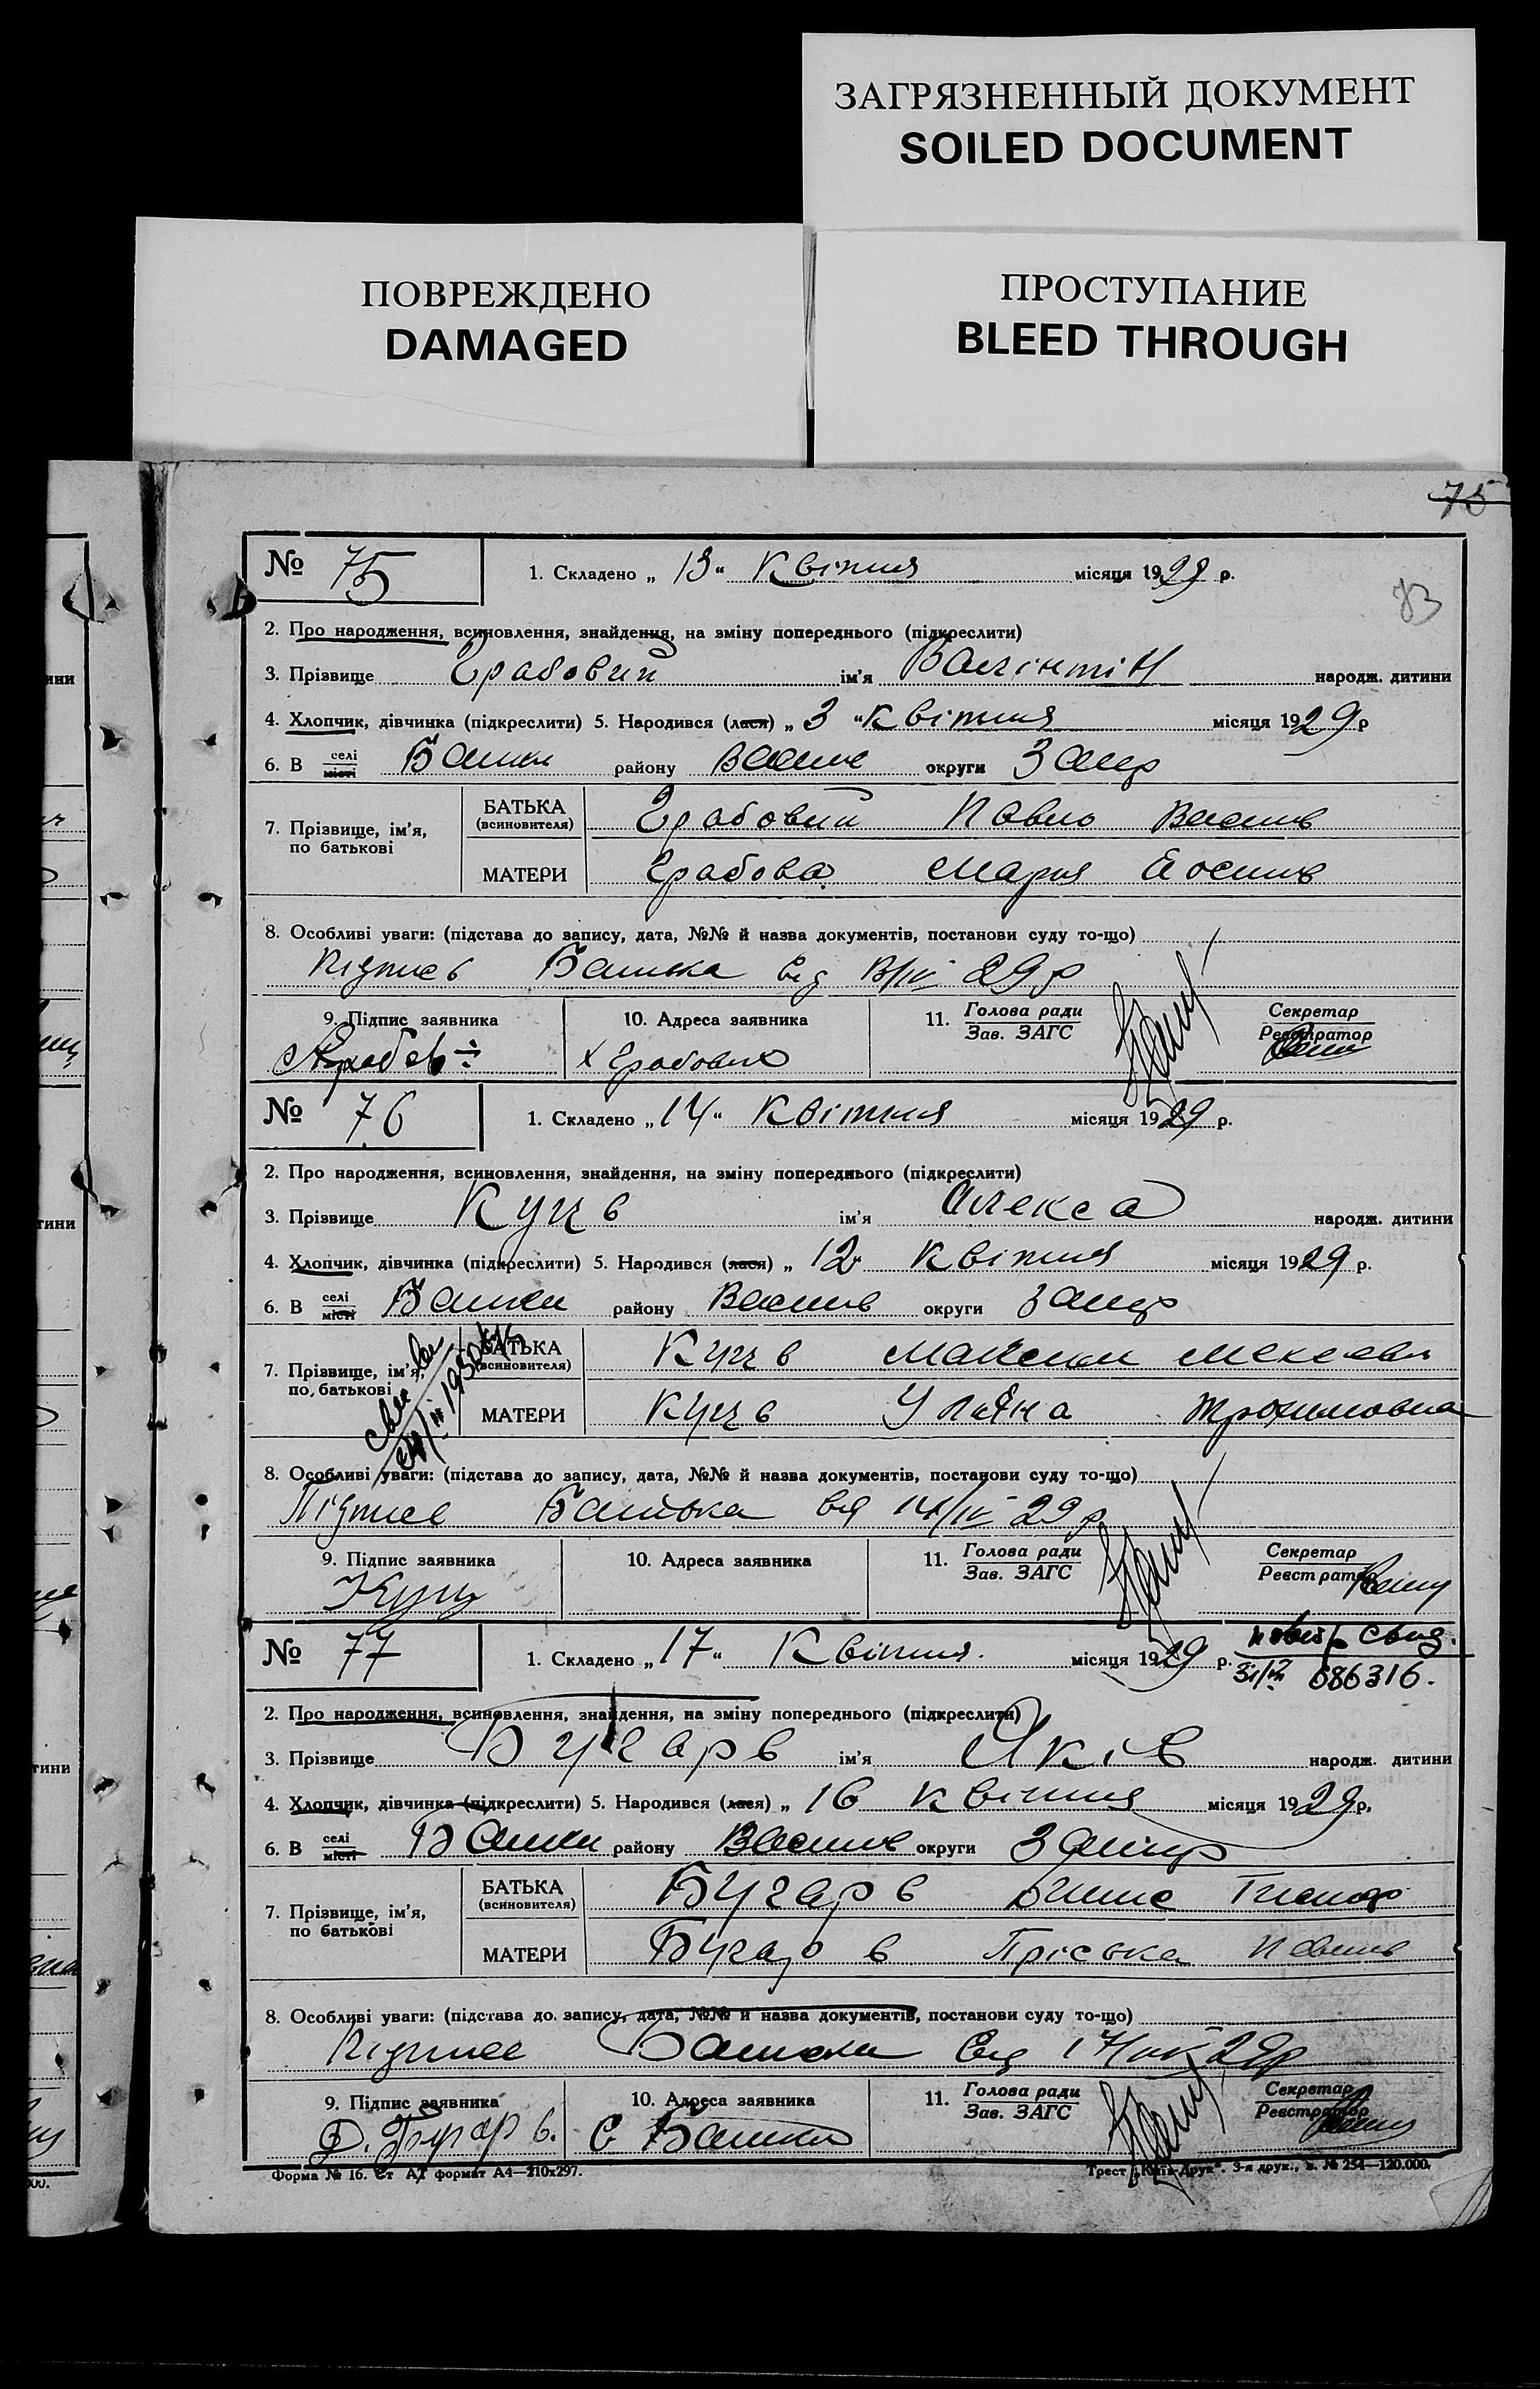 ЗАГРЯЗНЕННЫЙ ДОКУМЕНТ
SOILED DOCUMENT
ПОВРЕЖДЕНО
DAMAGED
ПРОСТУПАНИЕ
BLEED THROUGH
75
№ 75
1. Складено „ 13 “ Квітня місяця 1929 р.
83
2. Про народження, всиновлення, знайдення, на зміну попереднього (підкреслити)
3. Прізвище Грабовий ім'я Валінтін народж. дитини
4. Хлопчик, дівчинка (підкреслити) 5. Народився (лася) „ 3 “ Квітня місяця 1929 р
6. В селі місті Балки району Васил округи Запор
7. Прізвище, ім'я, по батькові
БАТЬКА (всиновителя) Грабовий Павло Василів
МАТЕРИ Грабова Мария Йосипів
8. Особливі уваги: (підстава до запису, дата, №№ й назва документів, постанови суду то-що)
Підпис Батька від 13/IV 29 р
9. Підпис заявника
10. Адреса заявника
11. Голова ради Зав. ЗАГС
Секретар Реєстратор
х Грабових
№ 76
1. Складено „ 14 “ Квітня місяця 1929 р.
2. Про народження, всиновлення, знайдення, на зміну попереднього (підкреслити)
3. Прізвище Куц в ім'я Олекса народж. дитини
4. Хлопчик, дівчинка (підкреслити) 5. Народився (лася) „ 12 Квітня місяця 1929 р.
6. В селі місті Балки району Васил округи Запор
7. Прізвище, ім'я, по батькові
БАТЬКА (всиновителя) Куц в Максим
МАТЕРИ Куц в Уляна Трохимовна
8. Особливі уваги: (підстава до запису, дата, №№ й назва документів, постанови суду то-що)
Підпис Батька від 14/IV 29 р
9. Підпис заявника
10. Адреса заявника
11. Голова ради Зав. ЗАГС
Секретар Реєстратор
Куц
№ 77
1. Складено „ 17 “ Квітня. місяця 1929 р.
свид.
686316.
2. Про народження, всиновлення, знайдення, на зміну попереднього (підкреслити)
3. Прізвище Бугар в ім'я Яків народж. дитини
4. Хлопчик, дівчинка (підкреслити) 5. Народився (лася) „ 16 Квітня місяця 1929 р.
6. В селі місті Балки району Васил округи Запор
7. Прізвище, ім'я, по батькові
БАТЬКА (всиновителя) Бугар в
МАТЕРИ Бугар в Пріська Павлів
8. Особливі уваги: (підстава до запису, дата, №№ й назва документів, постанови суду то-що)
Підпис Батька від 17/IV 29р
9. Підпис заявника
10. Адреса заявника
11. Голова ради Зав. ЗАГС
Секретар Реєстратор
Д. Бугар в.
С Балки
Форма № 16. Ст АТ формат А4—210х297.
Трест „Київ-Друк“. 3-я друк., з. № 254—120.000.